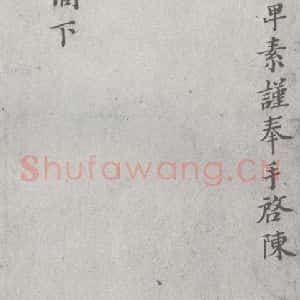 素謹奉手啓陳
下
Shufawang.cn